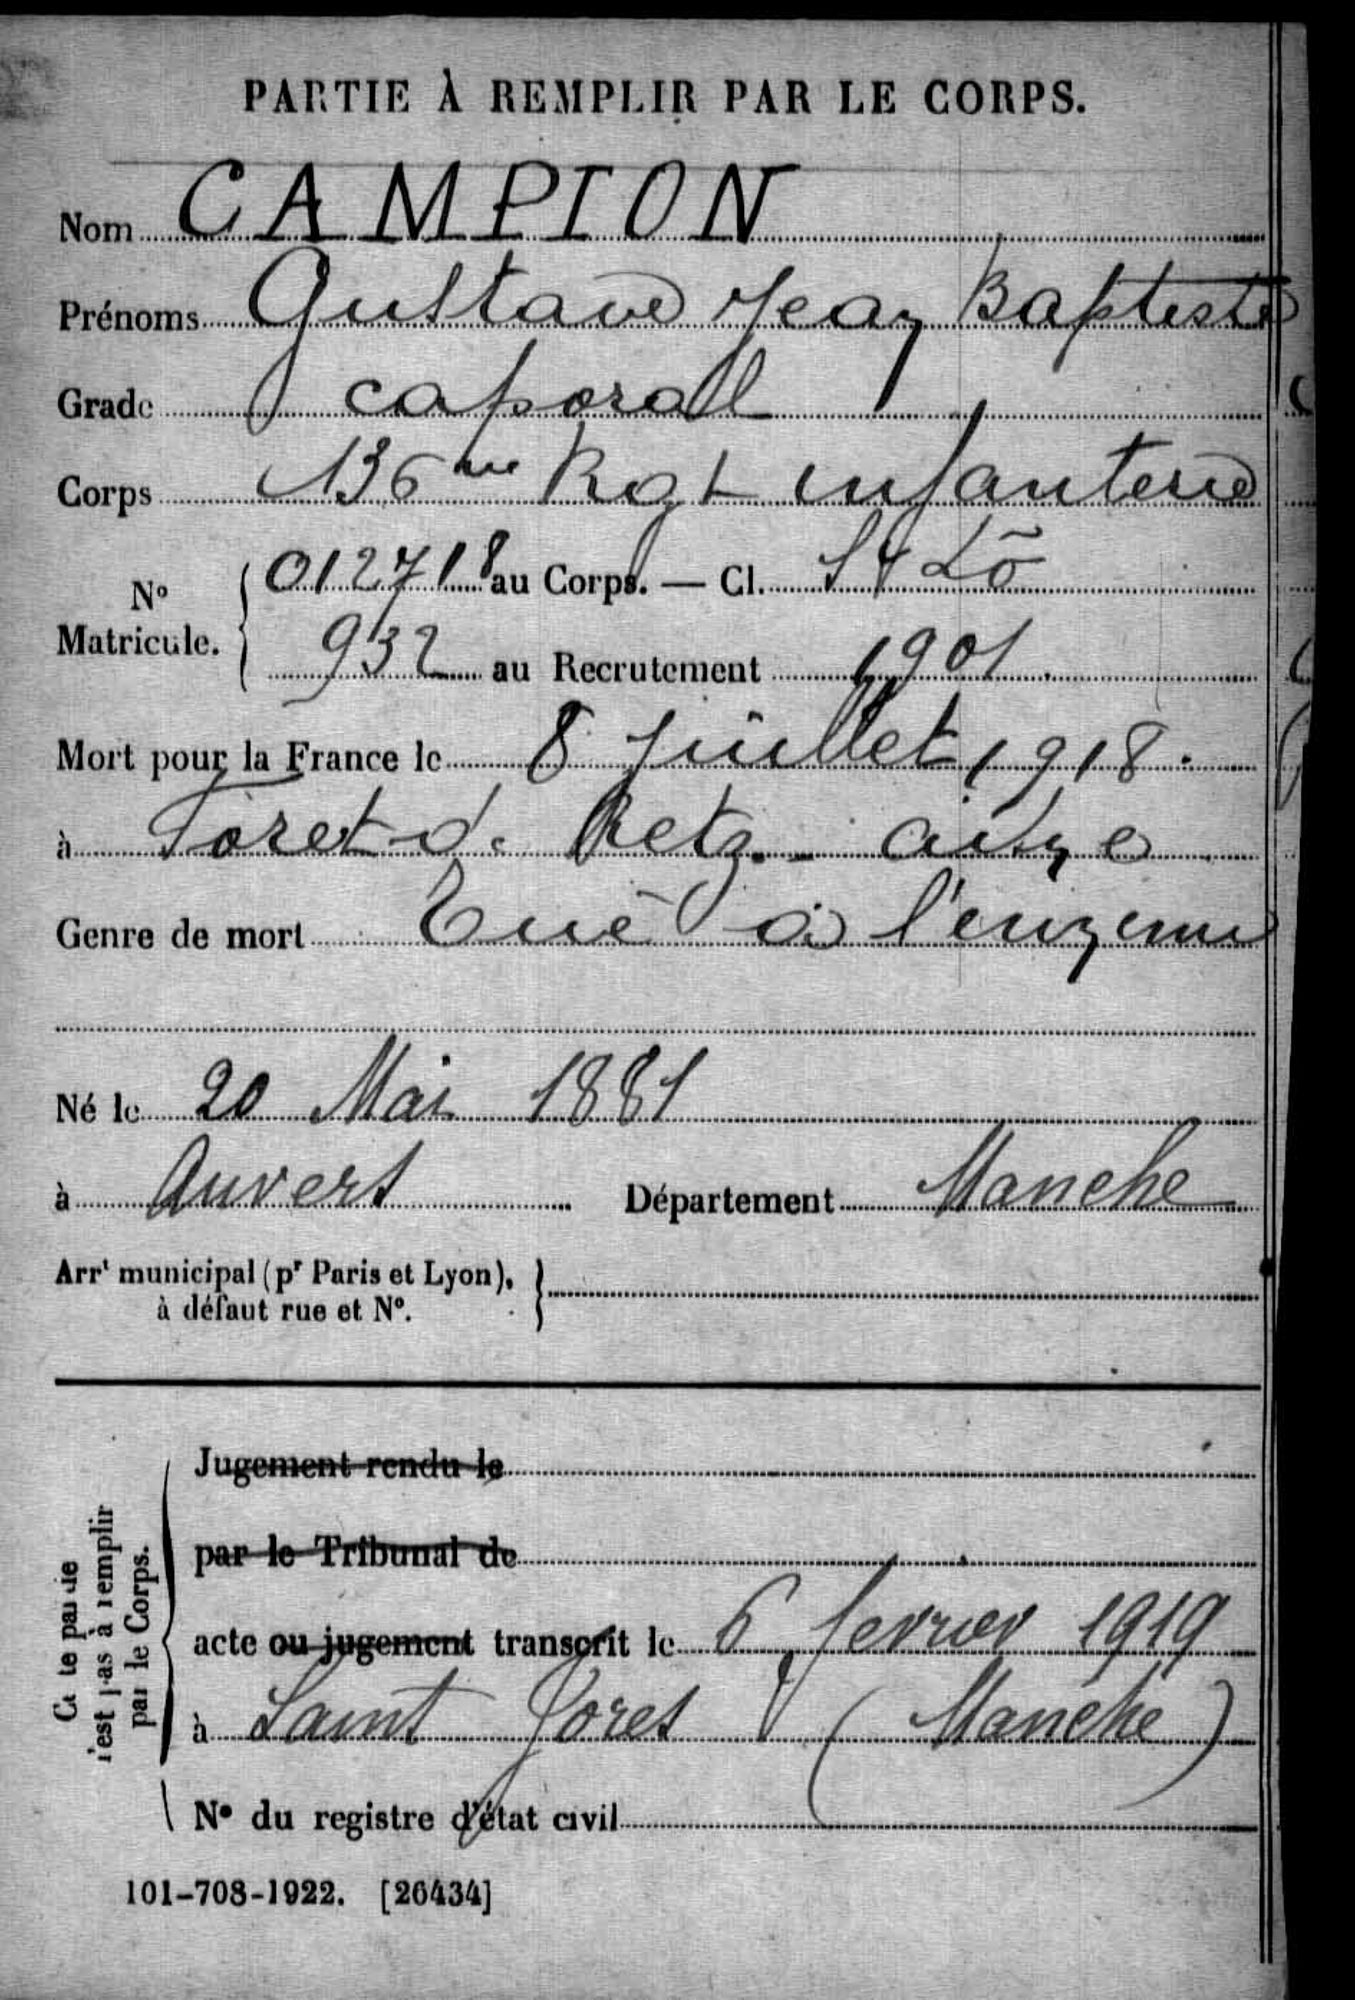 PARTIE À REMPLIR PAR LE CORPS.
Nom CAMPION
Prénoms Gustave Jean Baptiste
Grade caporal
Corps 136me Rgt infanterie
N° Matricule. { 012718 au Corps. — Cl. St Lô
932 au Recrutement 1901
Mort pour la France le 8 juillet 1918.
à Foret de Retz - aisne
Genre de mort Tué à l'ennemi
Né le 20 Mai 1881
à Auvers Département Manche
Arrt municipal (pr Paris et Lyon), }
à défaut rue et N°.
Cette partie
n'est pas à remplir
par le Corps.
Jugement rendu le
par le Tribunal de
acte ou jugement transcrit le 6 fevrier 1919
à Saint Jores (Manche)
N° du registre d'état civil
101-708-1922. [26434]